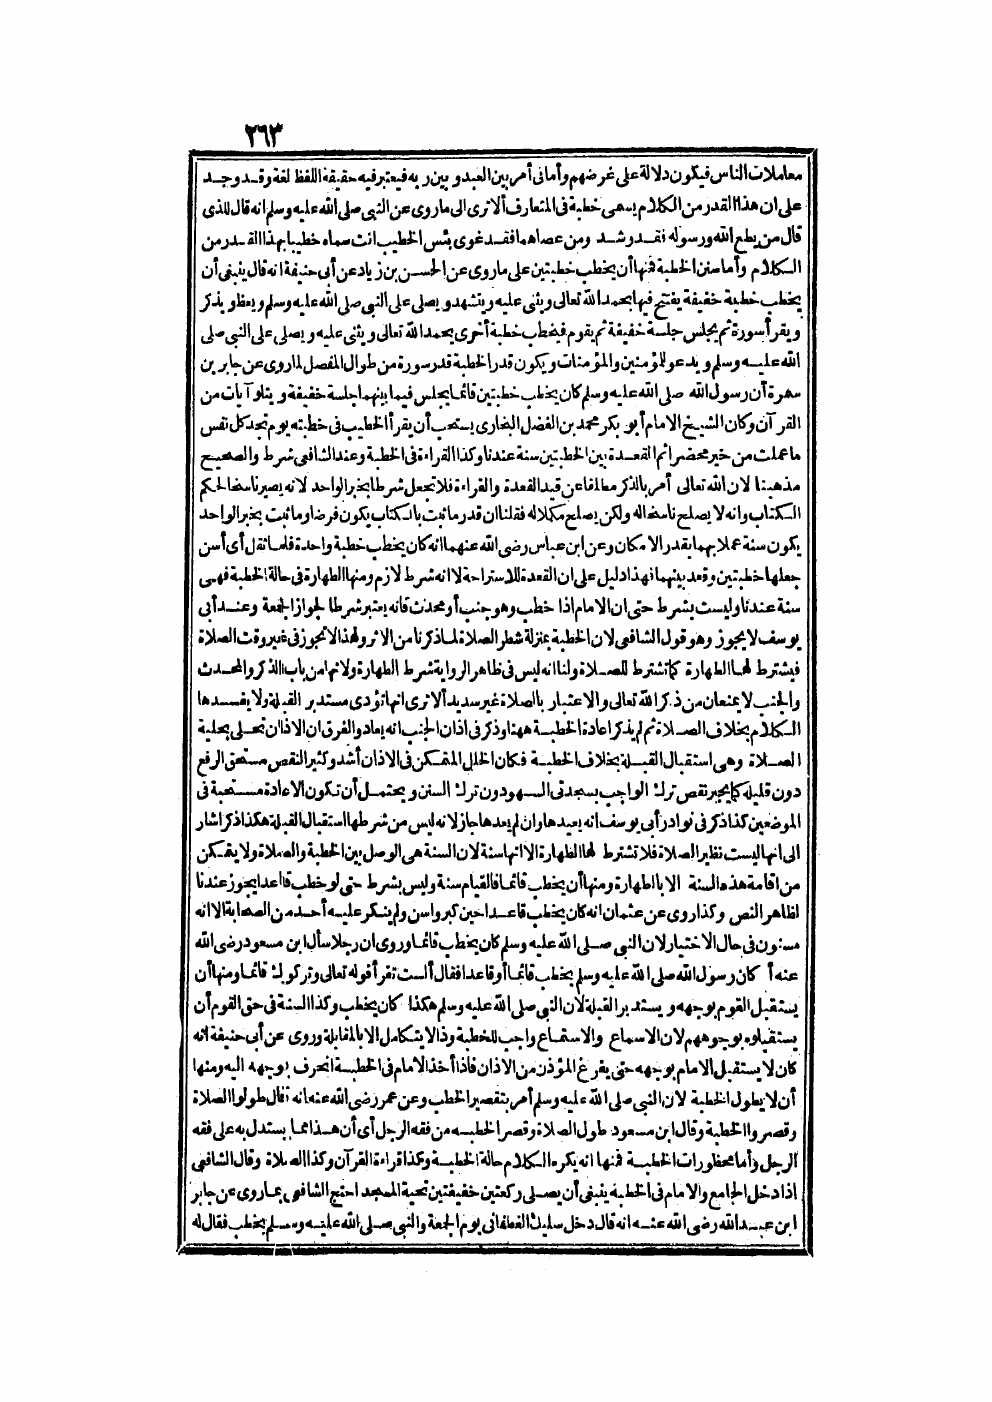 ٢٦٣
معاملات الناس فيكون دلالة على غرضهم وأما في أمر بين العبد وبين ربه فيعتبر فيه حقيقة اللفظ لغة وقد وجد
على ان هذا القدر من الكلام يسمى خطبة في المتعارف ألا ترى الى ما روى عن النبي صلى الله عليه وسلم انه قال للذى
قال من يطع الله ورسوله فقد رشد ومن عصاهما فقد غوى بئس الخطيب انت سماه خطيبا بهذا القدر من
الكلام وأما سنن الخطبة فمنها أن يخطب خطبتين على ما روى عن الحسن بن زياد عن أبى حنيفة انه قال ينبغى أن
يخطب خطبة خفيفة يفتتح فيها بحمد الله تعالى ويثنى عليه ويتشهد ويصلى على النبي صلى الله عليه وسلم ويعظ ويذكر
ويقرأ سورة ثم يجلس جلسة خفيفة ثم يقوم فيخطب خطبة أخرى يحمد الله تعالى ويثنى عليه ويصلى على النبي صلى
الله عليه وسلم ويدعو للمؤمنين والمؤمنات ويكون قدر الخطبة قدر سورة من طوال المفصل لما روى عن جابر بن
سمرة أن رسول الله صلى الله عليه وسلم كان يخطب خطبتين قائما يجلس فيما بينهما جلسة خفيفة ويتلو آيات من
القرآن وكان الشيخ الامام أبو بكر محمد بن الفضل البخارى يستحب أن يقرأ الخطيب فى خطبته يوم تجد كل نفس
ما عملت من خير محضرا ثم القعدة بين الخطبتين سنة عندنا وكذا القراءة فى الخطبة وعند الشافعى شرط والصحيح
مذهبنا لان الله تعالى أمر بالذكر مطلقا عن قيد القعدة والقراءة فلا تجعل شرطا بخبر الواحد لانه يصير ناسخا لحكم
الكتاب وانه لا يصلح ناسخا له ولكن يصلح مكملا له فقلنا ان قدر ما ثبت بالكتاب يكون فرضا وما ثبت بخبر الواحد
يكون سنة عملا بهما بقدر الامكان وعن ابن عباس رضى الله عنهما انه كان يخطب خطبة واحدة فلما ثقل أى أسن
جعلها خطبتين وقعد بينهما فهذا دليل على ان القعدة للاستراحة لا انه شرط لازم ومنها الطهارة فى حالة الخطبة فهى
سنة عندنا وليست بشرط حتى ان الامام اذا خطب وهو جنب أو محدث فانه يعتبر شرطا لجواز الجمعة وعند أبى
يوسف لا يجوز وهو قول الشافعى لان الخطبة بمنزلة شطر الصلاة لما ذكرنا من الاثر ولهذا لا تجوز فى غير وقت الصلاة
فيشترط لها الطهارة كما تشترط للصلاة ولنا انه ليس فى ظاهر الرواية شرط الطهارة ولانها من باب الذكر والمحدث
والجنب لا يمنعان من ذكر الله تعالى والاعتبار بالصلاة غير سديد ألا ترى انها تؤدى مستدبر القبلة ولا يفسدها
الكلام بخلاف الصلاة ثم لم يذكر اعادة الخطبة ههنا وذكر فى اذان الجنب انه يعاد والفرق ان الاذان تحلى بحلية
الصلاة وهى استقبال القبلة بخلاف الخطبة فكان الخلل المتمكن فى الاذان أشد وكثير النقص مستحق الرفع
دون قليله كما يجبر نقص ترك الواجب بسجدتى السهو دون ترك السنن ويحتمل أن تكون الاعادة مستحبة فى
الموضعين كذا ذكر فى نوادر أبى يوسف انه يعيدها وان لم يعدها جاز لانه ليس من شرطها استقبال القبلة هكذا ذكر اشار
الى انها ليست نظير الصلاة فلا تشترط لها الطهارة الا انها سنة لان السنة هى الوصل بين الخطبة والصلاة ولا يتمكن
من اقامة هذه السنة الا بالطهارة ومنها أن يخطب قائما فالقيام سنة وليس بشرط حتى لو خطب قاعدا يجوز عندنا
لظاهر النص وكذا روى عن عثمان انه كان يخطب قاعدا حين كبر واسن ولم ينكر عليه أحد من الصحابة الا انه
مسنون فى حال الاختيار لان النبي صلى الله عليه وسلم كان يخطب قائما وروى ان رجلا سأل ابن مسعود رضى الله
عنه أ كان رسول الله صلى الله عليه وسلم يخطب قائما أو قاعدا فقال ألست تقرأ قوله تعالى وتركوك قائما ومنها أن
يستقبل القوم بوجهه ويستدبر القبلة لان النبي صلى الله عليه وسلم هكذا كان يخطب وكذا السنة فى حق القوم أن
يستقبلوه بوجوههم لان الاسماع والاستماع واجب للخطبة وذا لا يتكامل الا بالمقابلة وروى عن أبى حنيفة انه
كان لا يستقبل الامام بوجهه حتى يفرغ المؤذن من الاذان فاذا أخذ الامام فى الخطبة انحرف بوجهه اليه ومنها
أن لا يطول الخطبة لان النبي صلى الله عليه وسلم أمر بتقصير الخطب وعن عمر رضى الله عنه انه قال طولوا الصلاة
وقصروا الخطبة وقال ابن مسعود طول الصلاة وقصر الخطبة من فقه الرجل أى أن هذا مما يستدل به على فقه
الرجل وأما محظورات الخطبة فمنها انه يكره الكلام حالة الخطبة وكذا قراءة القرآن وكذا الصلاة وقال الشافعى
اذا دخل الجامع والامام فى الخطبة ينبغى أن يصلى ركعتين خفيفتين تحية المسجد احتج الشافعى بما روى عن جابر
ابن عبد الله رضى الله عنه انه قال دخل سليك الغطفانى يوم الجمعة والنبي صلى الله عليه وسلم يخطب فقال له